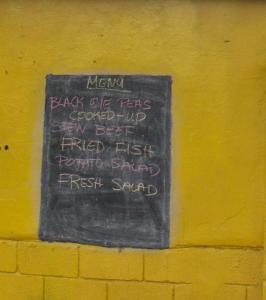 MENU
BLACK EYE PEAS
COOKED-UP
STEW BEEF
FRIED FISH
POTATO SALAD
FRESH SALAD